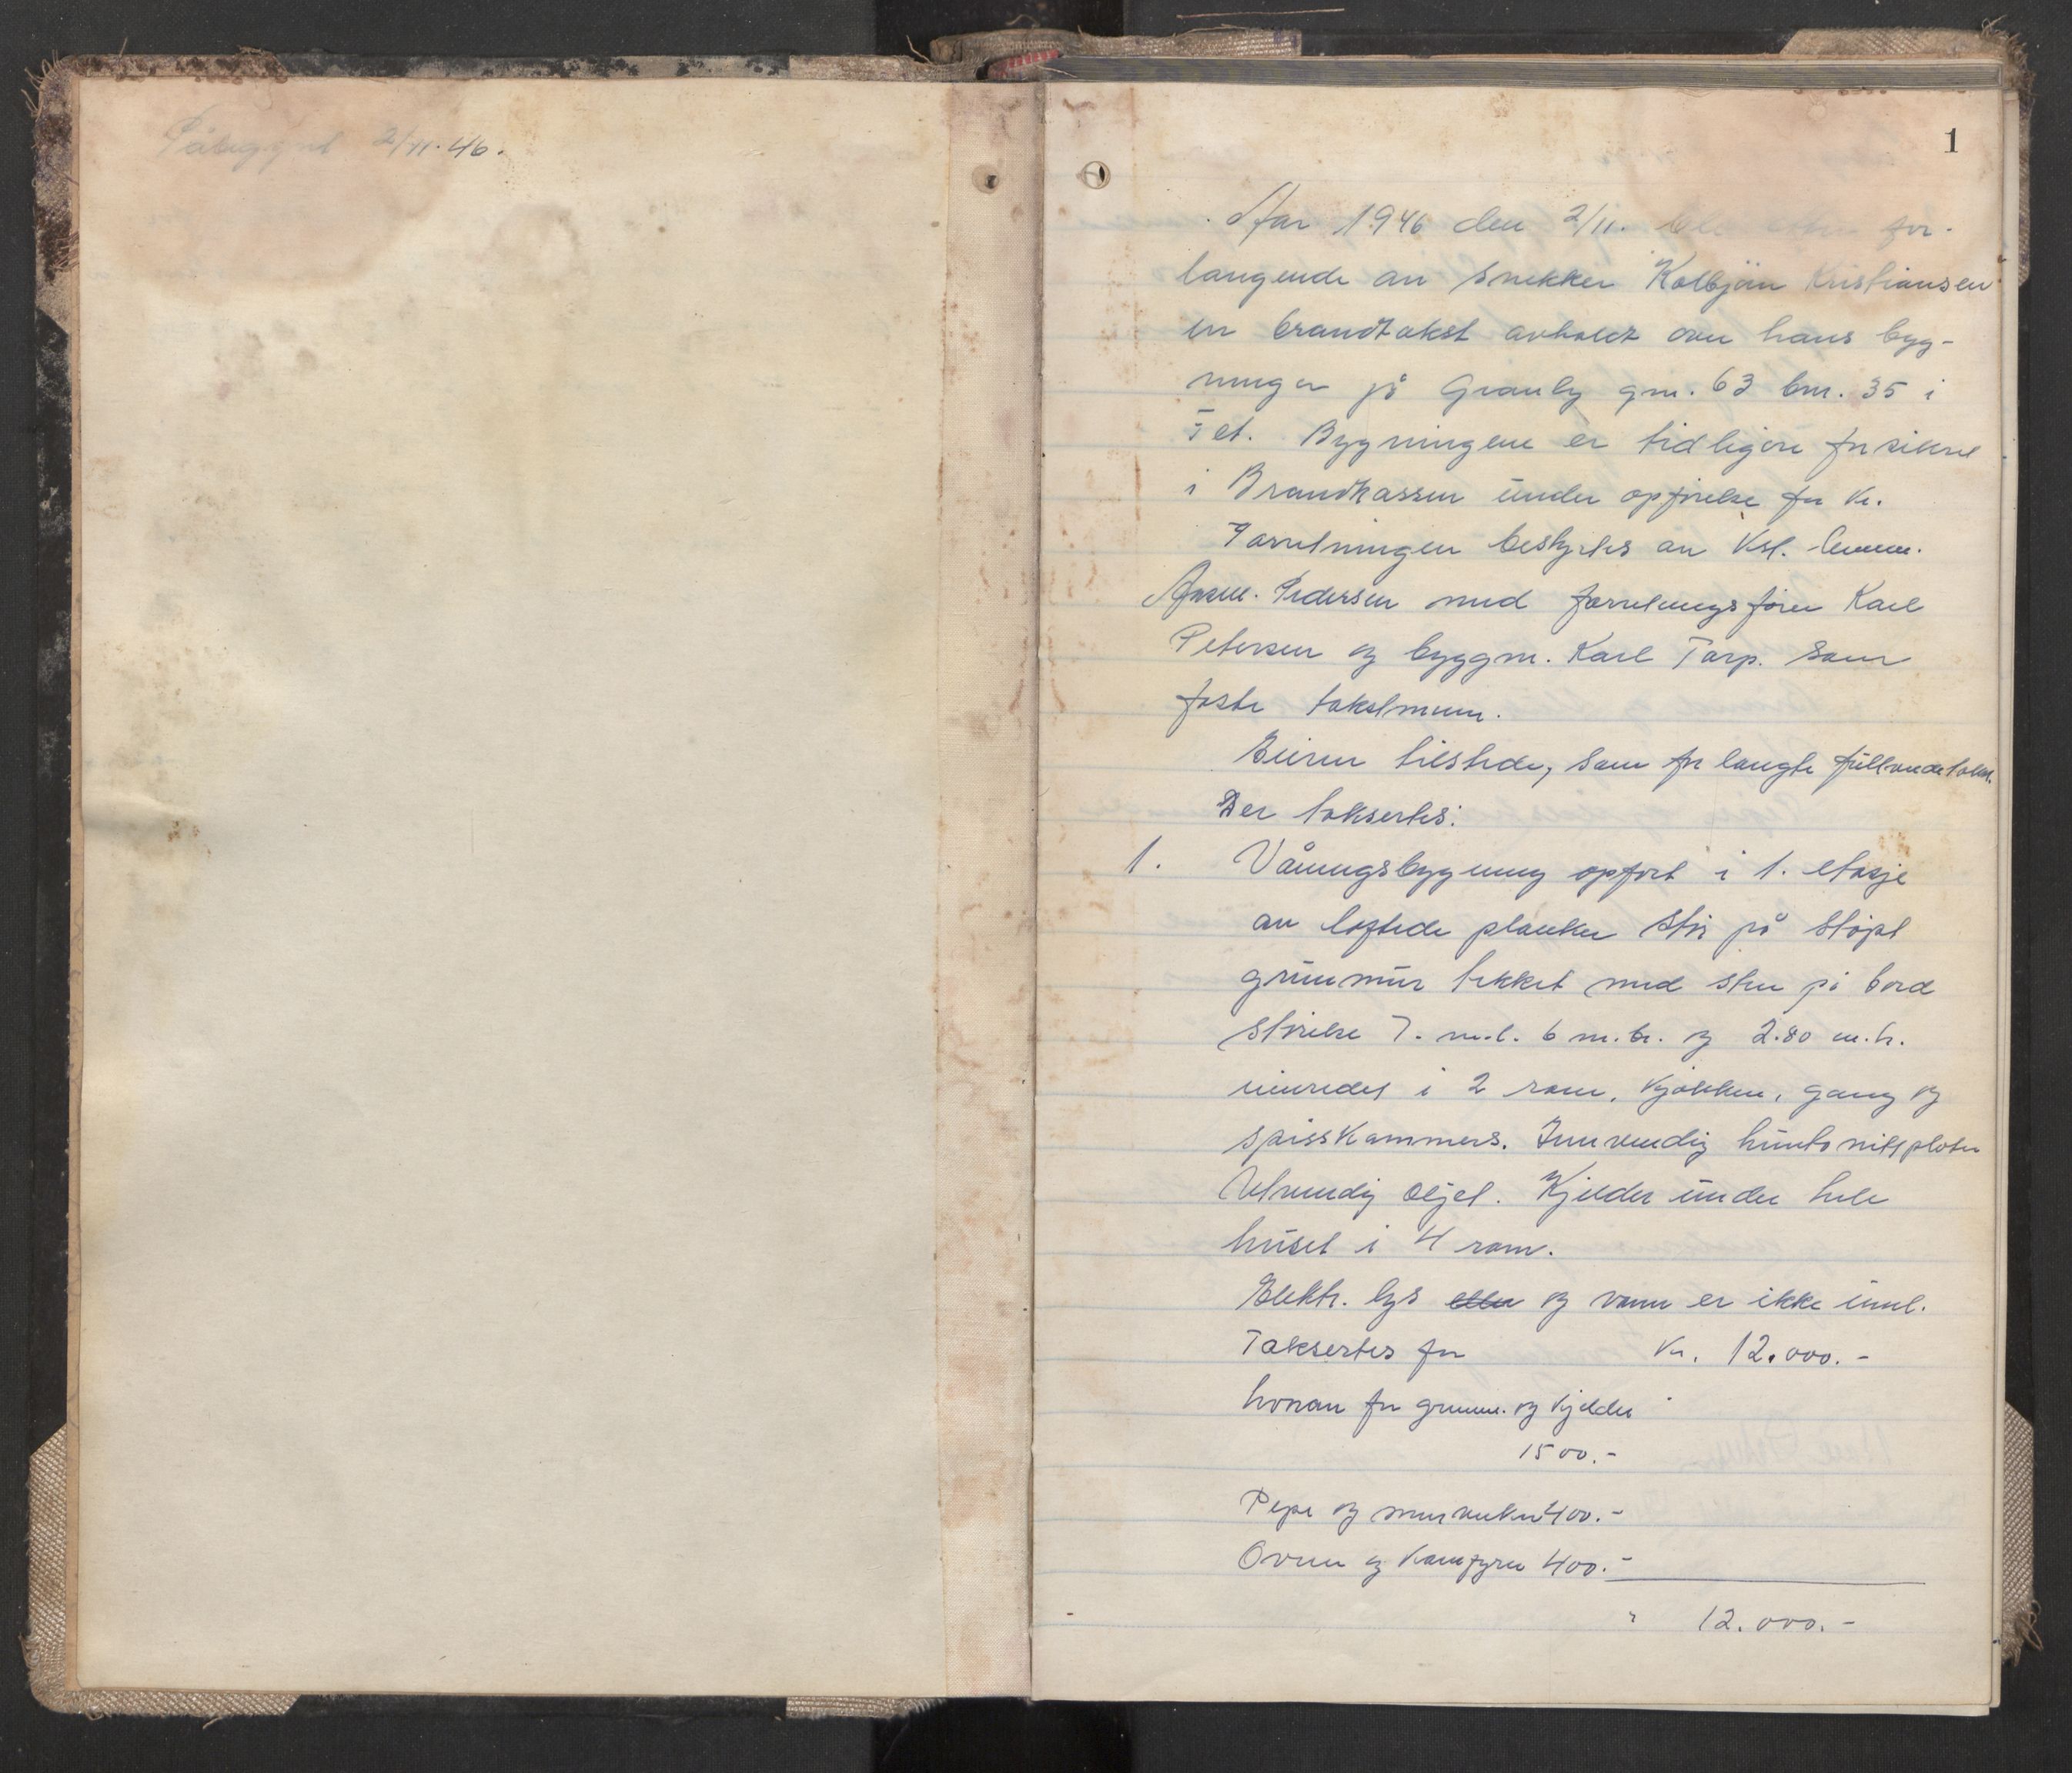 Påbegynt 2/11.46.
1
Aar 1946 den 2/11. ble etter for-
langende av snekker Kolbjørn Kristiansen
en brandtakst avholdt over hans byg-
ninger på Granly gnr. 63 bnr. 35 i
Bygningene er tidligere forsikret
i Brandkassen under opførelse for kr.
Forretningen bestyrtes av Ksl.
Pedersen med forretningsfører Karl
Petersen og byggm. Karl Tarp. som
faste takstmenn.
Eieren tilstede, som forlangte fullverdetakst.
Der taksertes:
1. Våningsbygning opført i 1. etasje
av loftede planker står på støpt
grunnmur tekket med sten på bord
størelse 7. m.l. 6 m.br. og 2.80 m.h.
innredet i 2 rom, kjøkken, gang og
spisskammers. Innvendig huntonittplater
Utvendig oljet. Kjelder under hele
huset i 4 rom.
Elektr. lys eller og vann er ikke innl.
Taksertes for kr. 12.000.-
hvorav for grunnm. og kjelder
1500.-
Pipe og murverker 400.-
Ovner og komfyrer 400.-
" 12.000.-